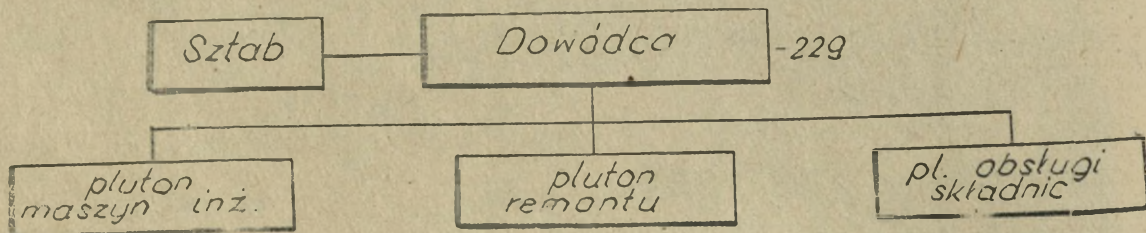 Sztab
Dowódca
-229
pluton
maszyn inż.
pluton
remontu
pl. obsługi
składnic